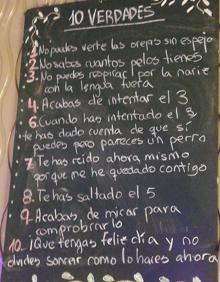 10 VERDADES
1. No puedes verte las orejas sin espejo
2. No sabes cuantos pelos tienes
3. No puedes respirar por la nariz
con la lengua fuera
4. Acabas de intentar el 3
6. Cuando has intentado el 3
te has dado cuenta de que sí
puedes pero pareces un perro
7. Te has reído ahora mismo
porque me he quedado contigo
8. Te has saltado el 5
9. Acabas de mirar para
comprobarlo
10. ¡Que tengas feliz día y no
olvides sonreir como lo haces ahora